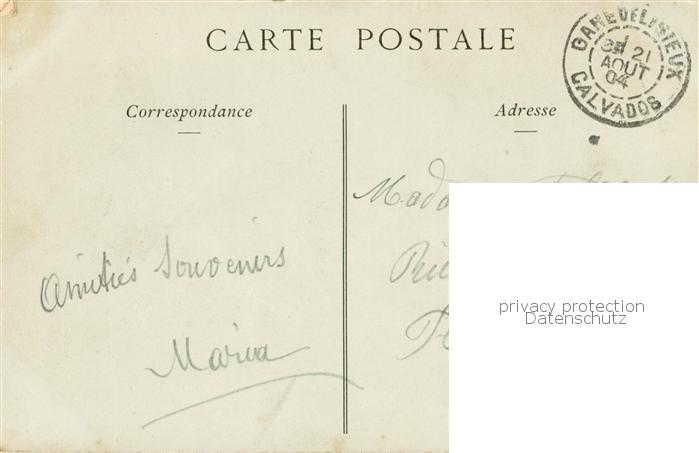 CARTE POSTALE
GARE DE LISIEUX
21
AOUT
04
CALVADOS
Correspondance
Adresse
Amitiés Souvenirs
Maria
privacy protection
Datenschutz